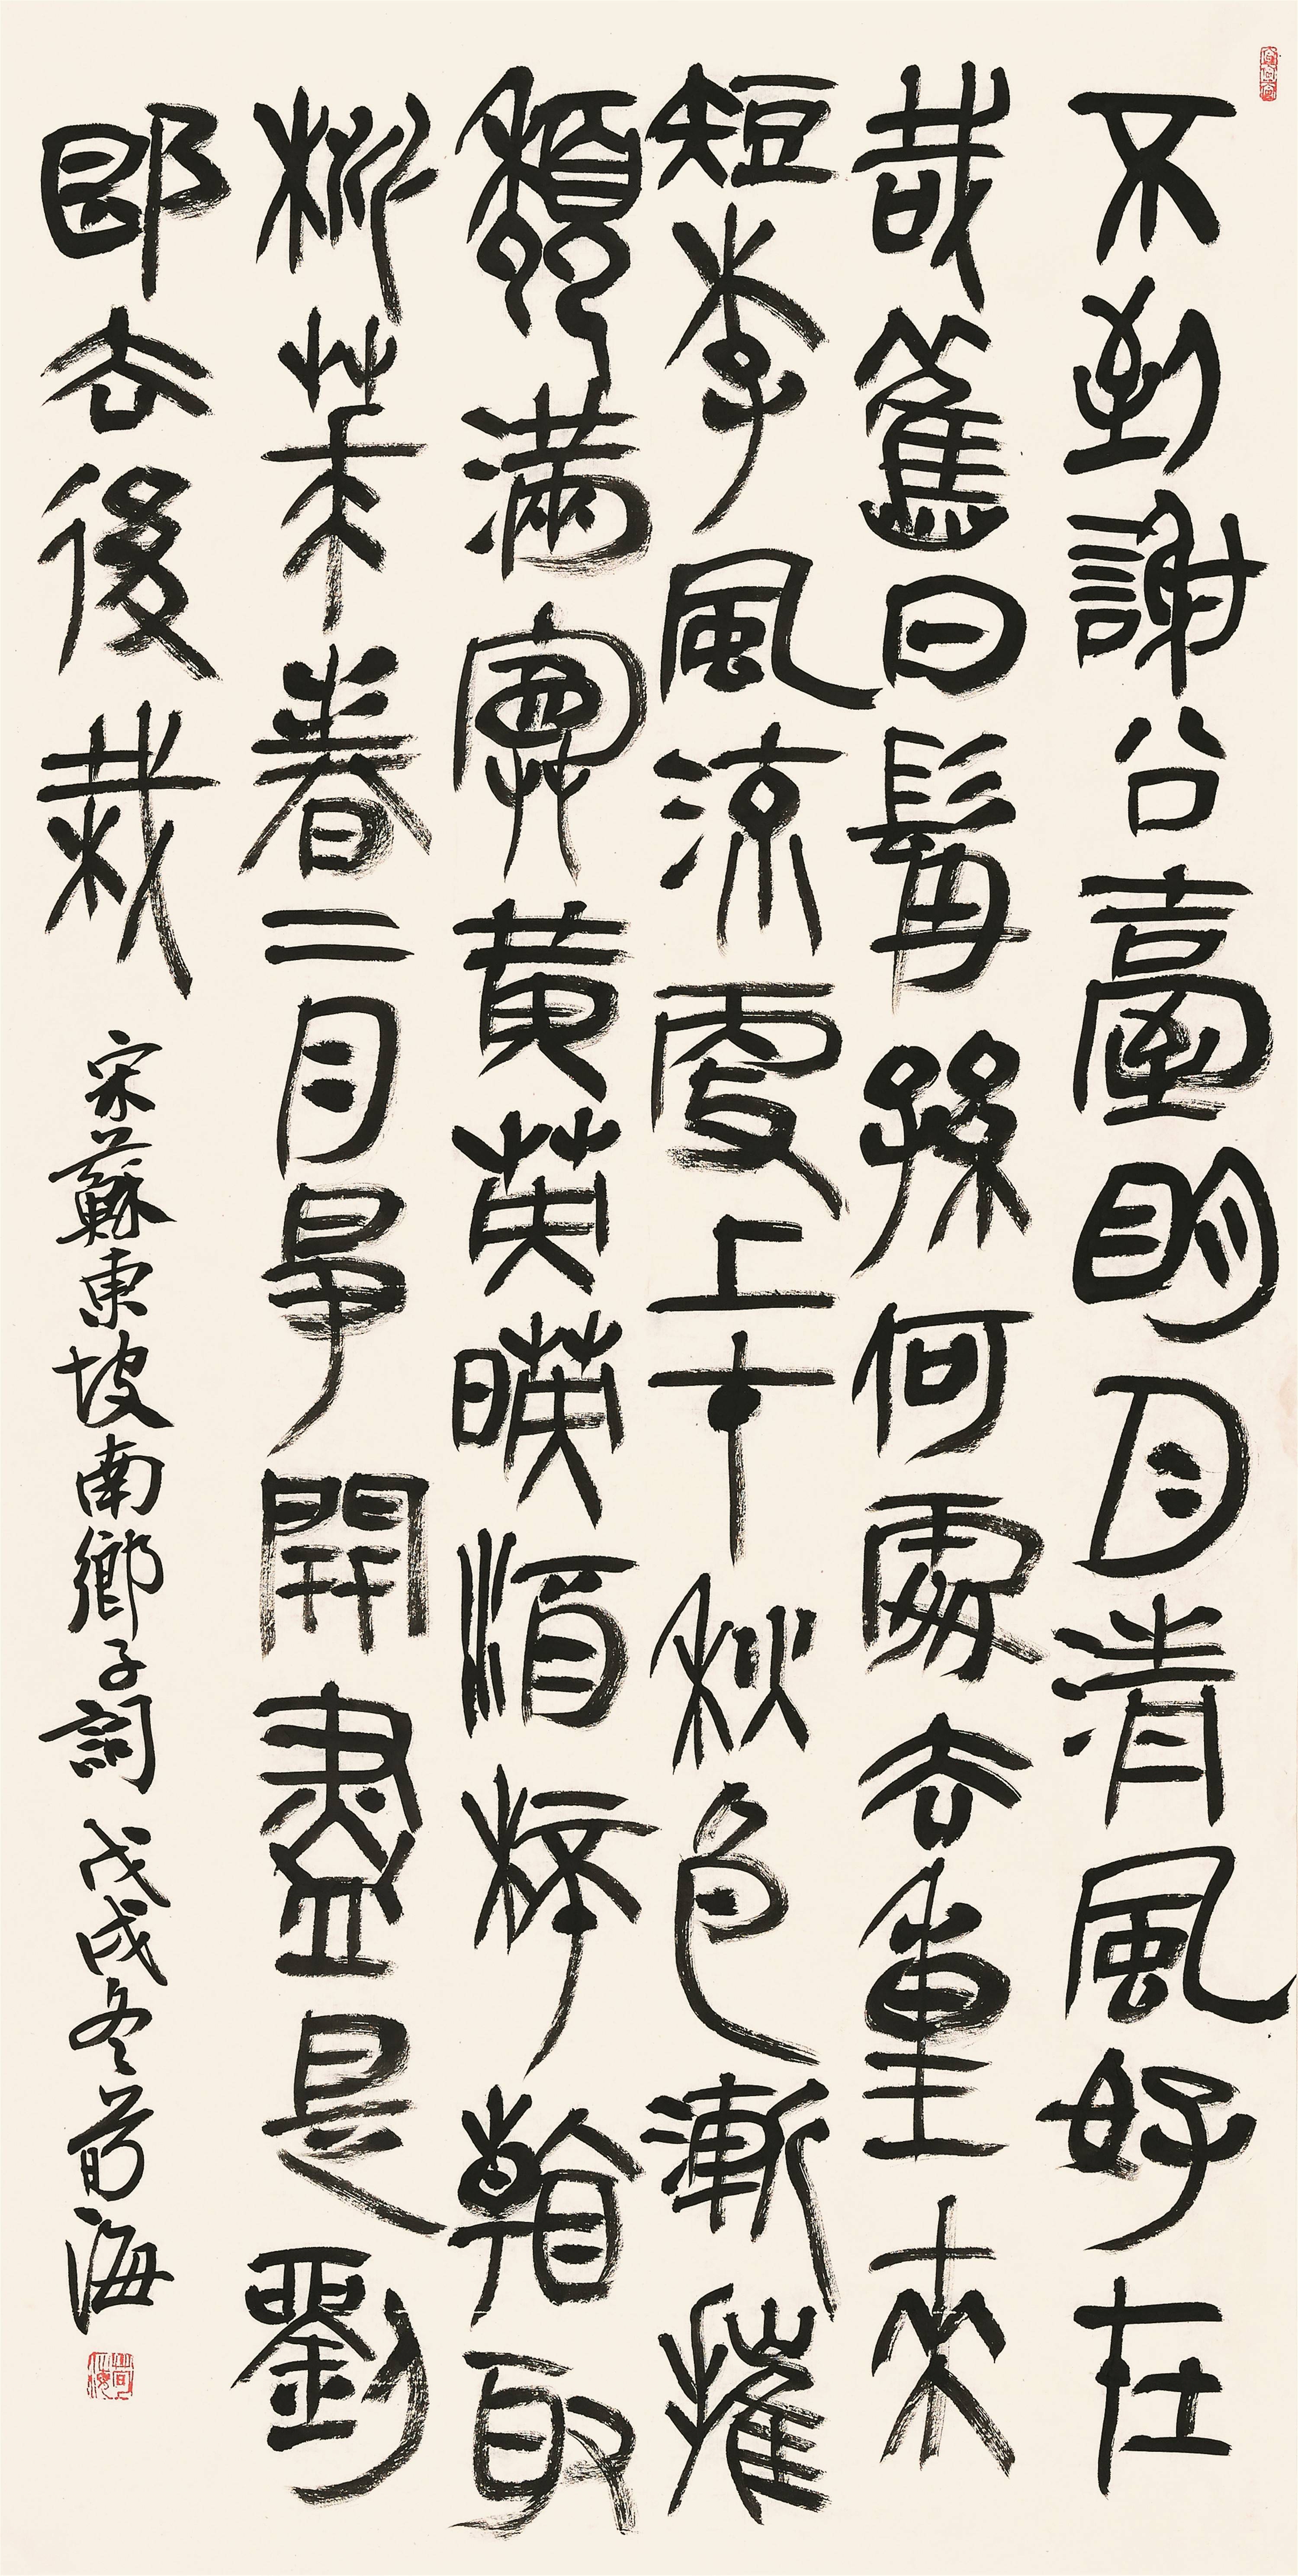 不到謝公臺明月清風好在
哉舊日髯孫何處去重來
短李風流更上才秋色漸摧
頹滿院黃英映酒杯看取
桃花春二月爭開盡是劉
郎去後栽 宋蘇東坡南鄉子詞 戊戌冬荀海
荀海